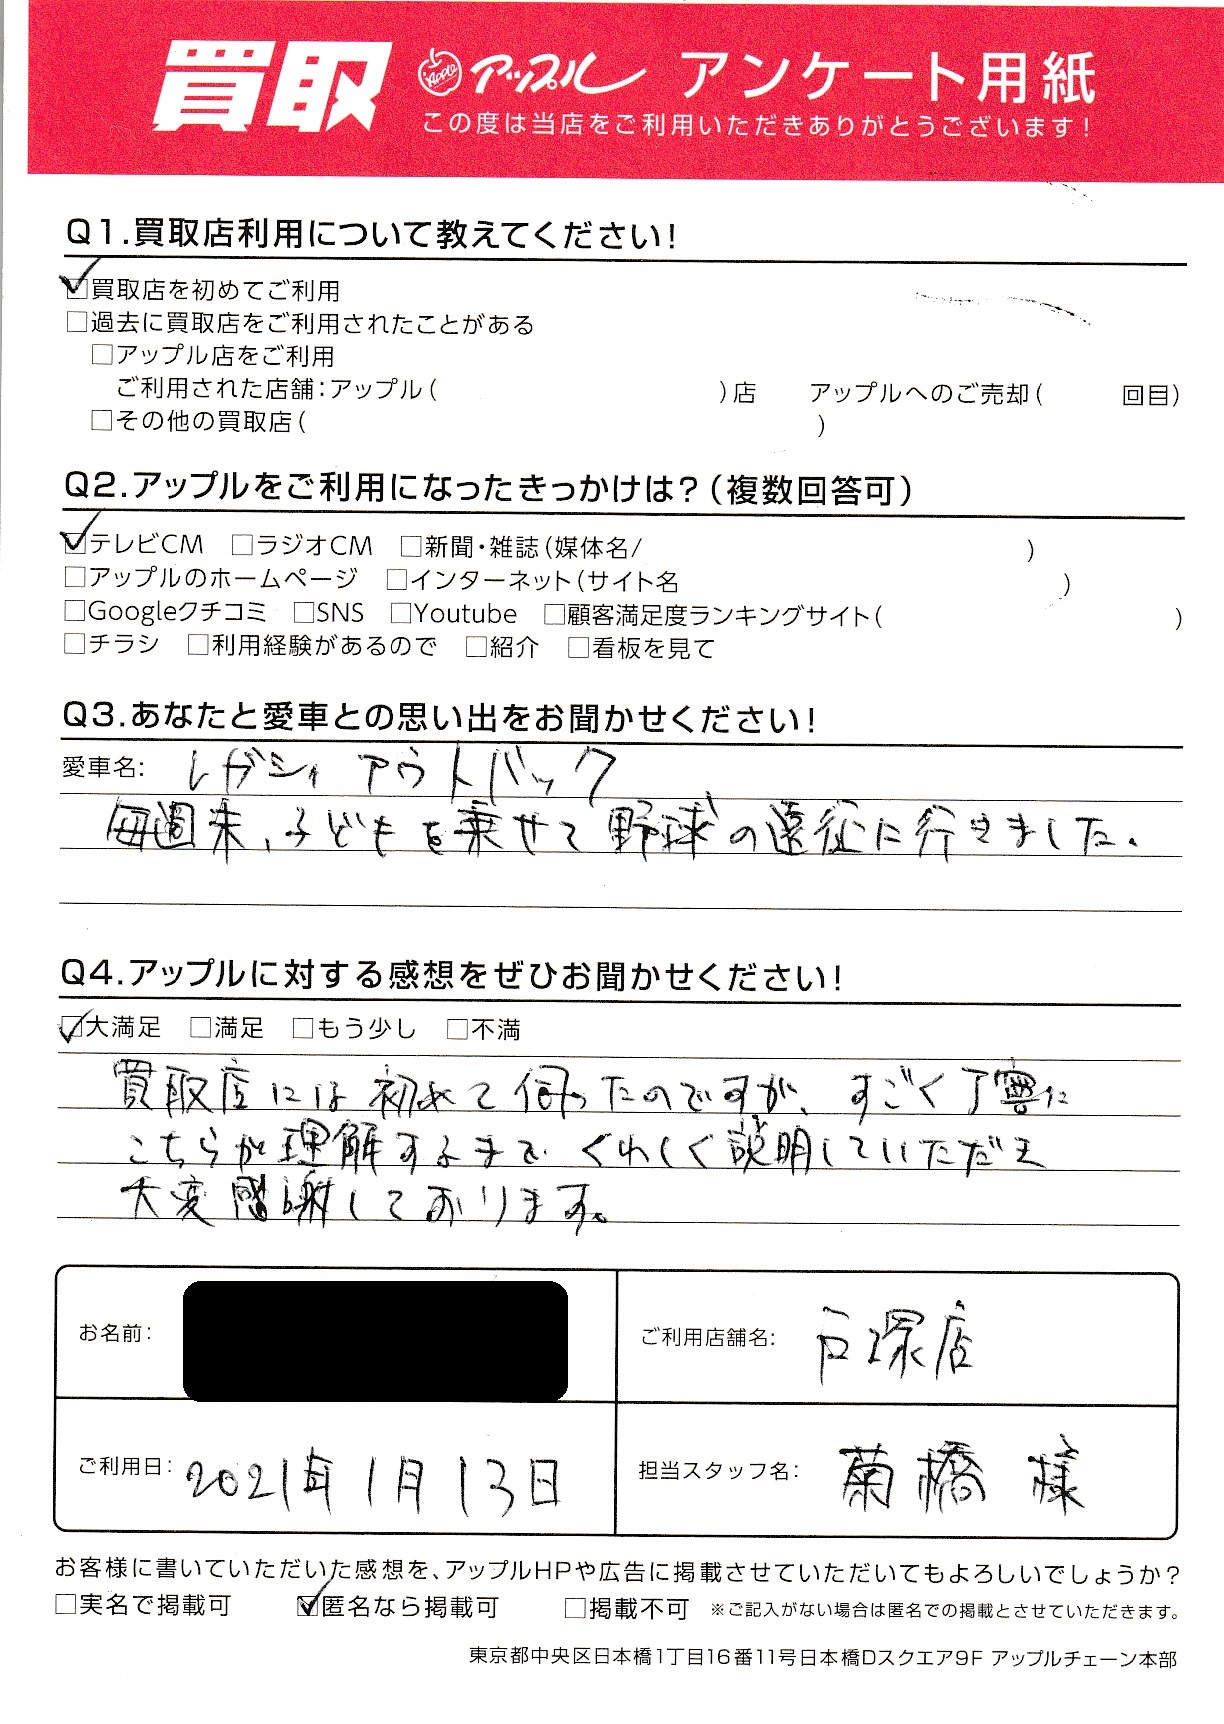 買取 APPLE アップル アンケート用紙
この度は当店をご利用いただきありがとうございます!
Q1.買取店利用について教えてください!
☑買取店を初めてご利用
□過去に買取店をご利用されたことがある
□アップル店をご利用
ご利用された店舗:アップル( )店 アップルへのご売却( 回目)
□その他の買取店( )
Q2.アップルをご利用になったきっかけは?(複数回答可)
☑テレビCM □ラジオCM □新聞・雑誌(媒体名/ )
□アップルのホームページ □インターネット(サイト名 )
□Googleクチコミ □SNS □Youtube □顧客満足度ランキングサイト( )
□チラシ □利用経験があるので □紹介 □看板を見て
Q3.あなたと愛車との思い出をお聞かせください!
愛車名: レガシィ アウトバック
毎週末、子どもを乗せて野球の遠征に行きました。
Q4.アップルに対する感想をぜひお聞かせください!
☑大満足 □満足 □もう少し □不満
買取店には初めて伺ったのですが、すごく丁寧に
こちらが理解するまで、くわしく説明していただき
大変感謝しております。
お名前:
ご利用店舗名: 戸塚店
ご利用日: 2021年1月13日
担当スタッフ名: 菊橋 様
お客様に書いていただいた感想を、アップルHPや広告に掲載させていただいてもよろしいでしょうか?
□実名で掲載可 ☑匿名なら掲載可 □掲載不可 ※ご記入がない場合は匿名での掲載とさせていただきます。
東京都中央区日本橋1丁目16番11号日本橋Dスクエア9F アップルチェーン本部